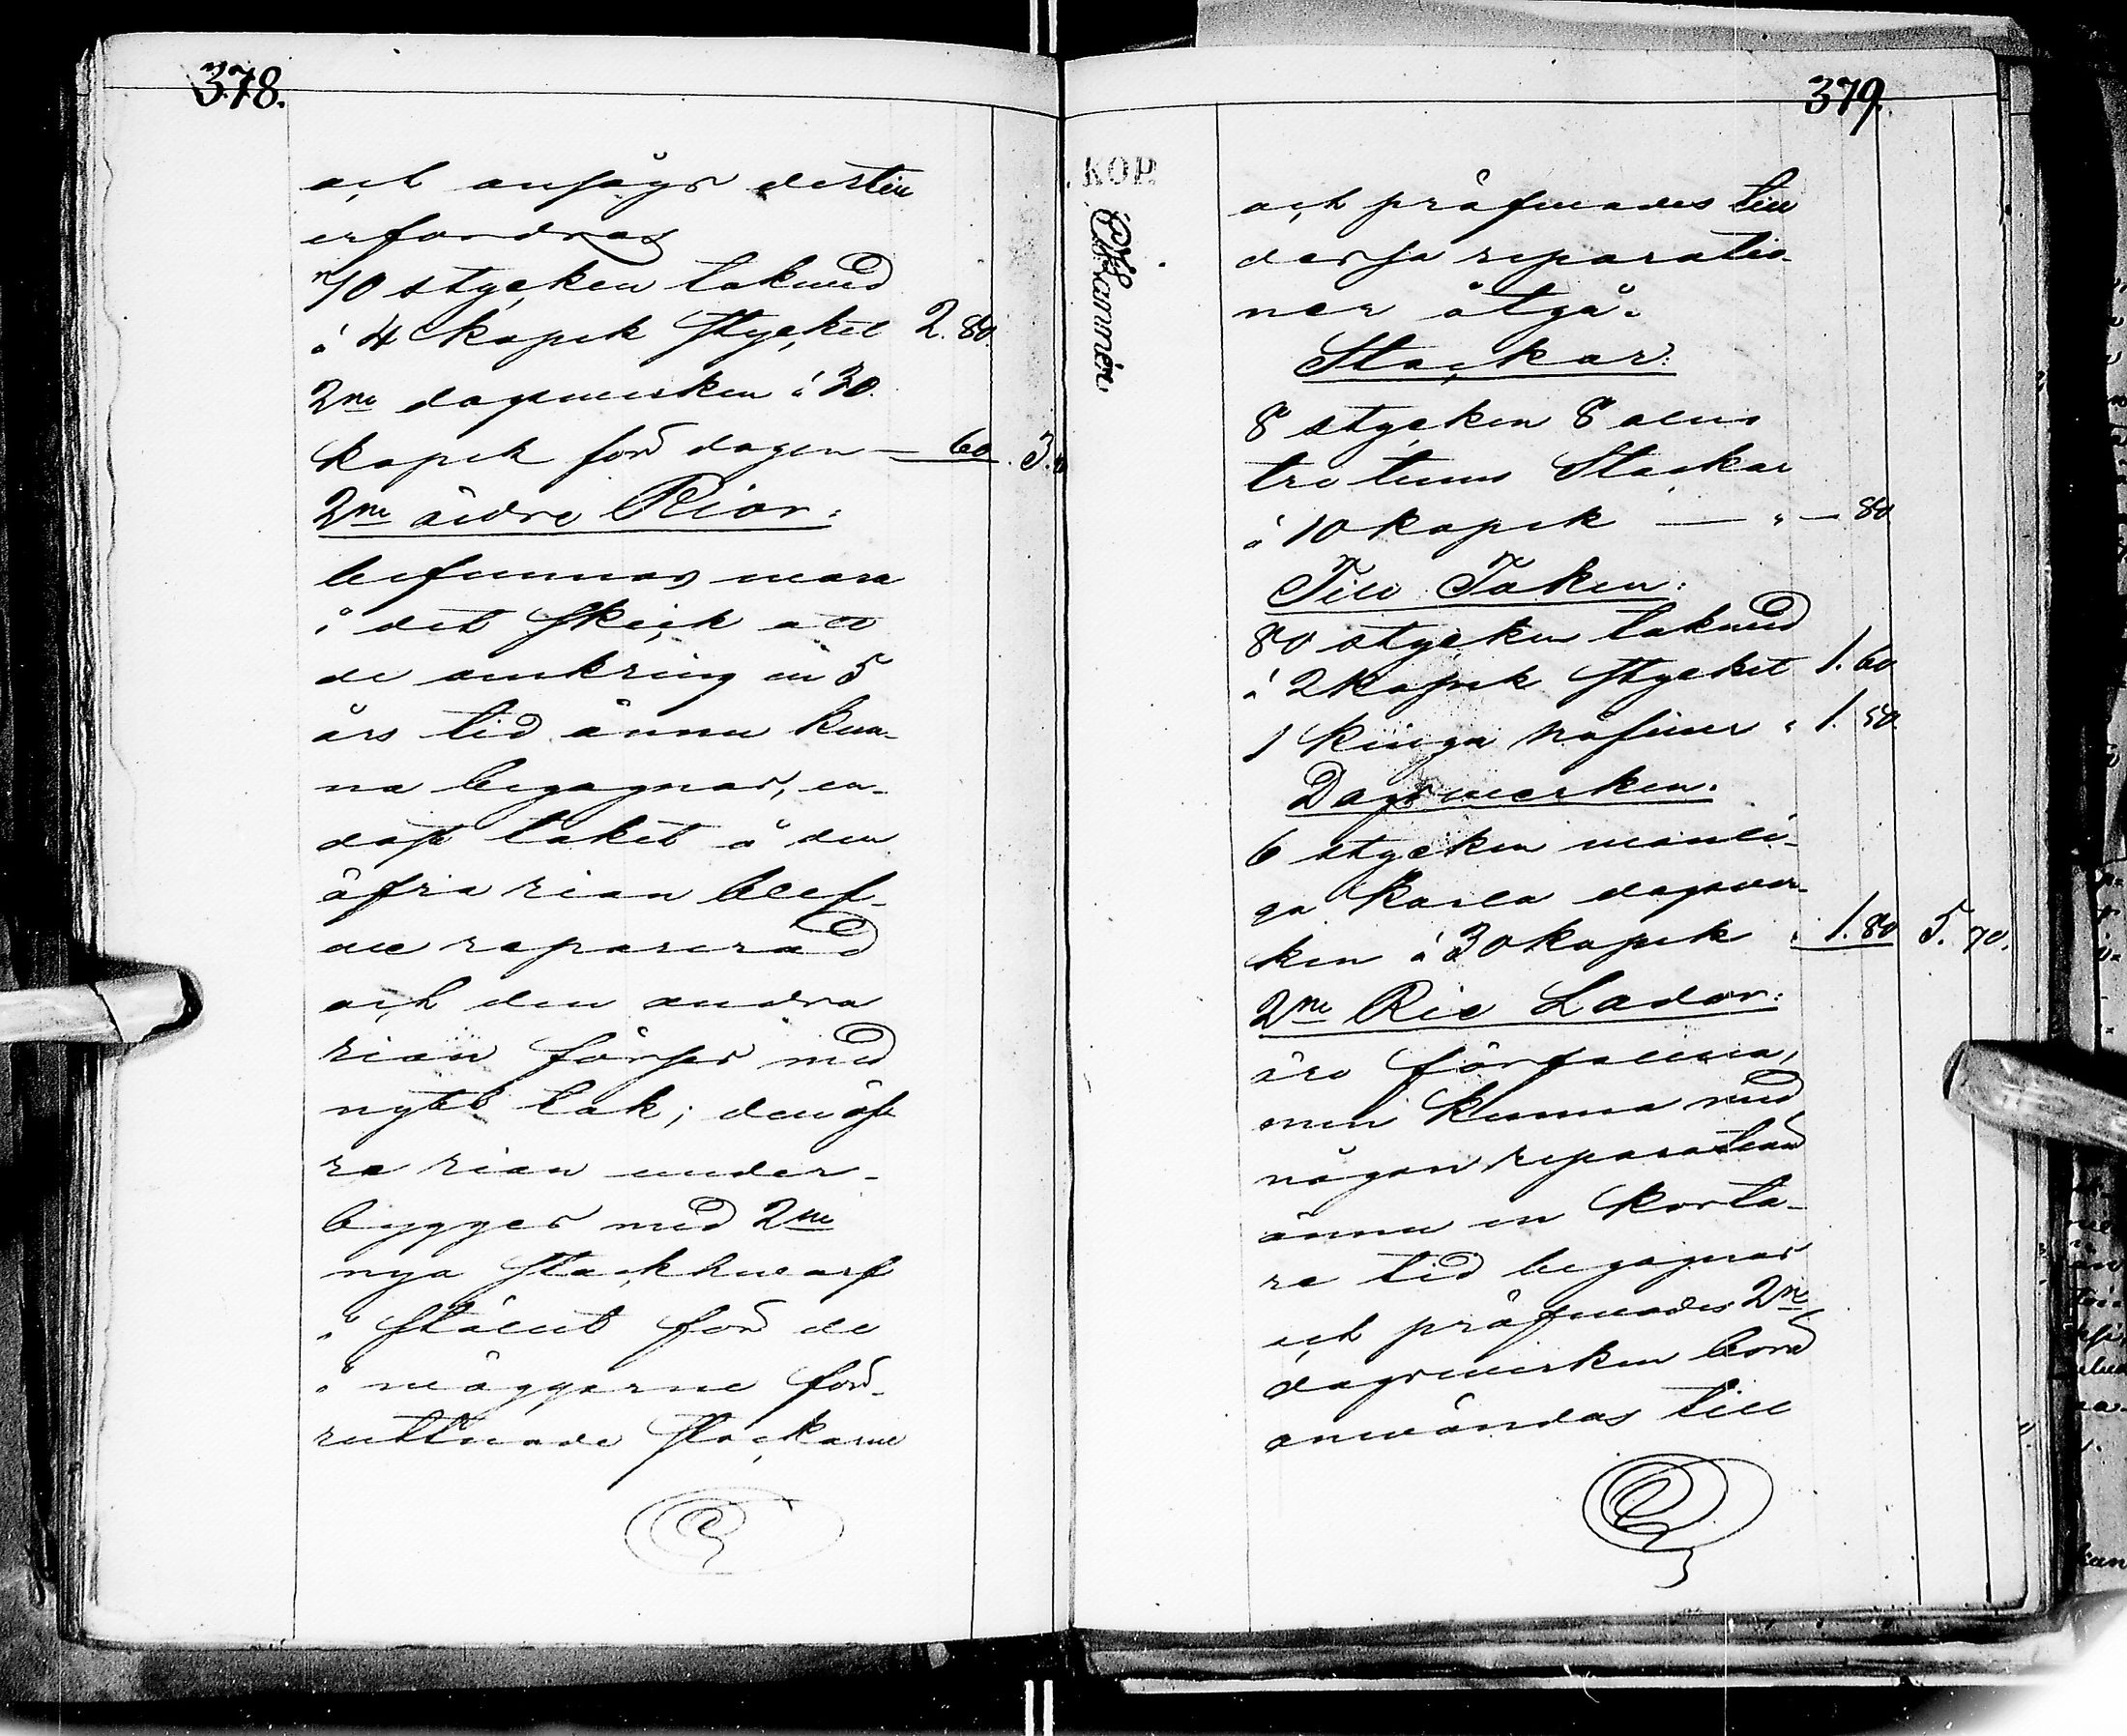 378.
och ansågs dertill
erfordras
70 stycken takved
á 4 kopek stycket 2. 80.
2ne dagsverken á 30.
kopek för dagen — 60. 3.
2ne äldre Rior:
befunnos vara
i det skick att
de omkring en 5
års tid ännu kun-
na begagnas, en-
dast taket å den
åfra rian blef-
ve reparerad
och den andra
rian förses med
nytt tak; den åf-
ra rian under-
bygges med 2ne
nya stockhvarf
i stället för de
i väggarne för-
ruttnade stockarne
379.
KOP.
och pröfvades till
dessa reparatio-
ner åtgå:
Stockar:
8 stycken 8 alns
tre tums Stockar
á 10 kopek — " — 80
Till Taken:
80 stycken takved
á 2 kopek stycket 1. 60
1 kinga näfver " 1. 50.
Dagsverken:
6 stycken manli-
ga karla dagsver-
ken á 30 kopek " 1. 80 5. 70.
2ne Rie Lador:
äro förfallna,
men kunna med
någon reparation
ännu en korta-
re tid begagnas
och pröfvades 2ne
dagsverken bord
användas till